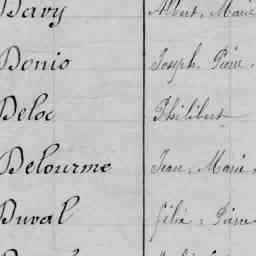 Davy Albert, Marie
Donio Joseph, Pierre,
Deloc Philibert
Delourme Jean, Marie,
Duval félix, Pierre